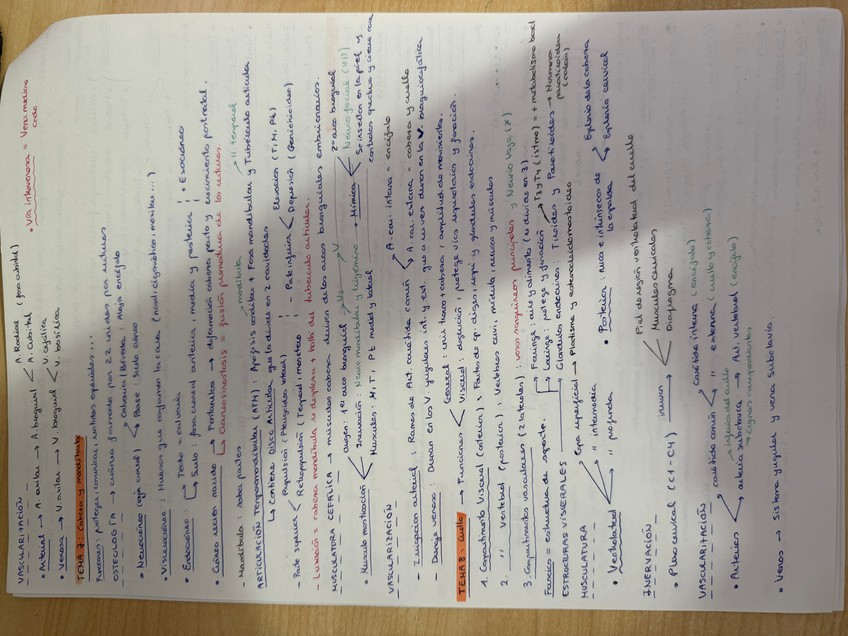 VASCULARIZACIÓN
• Arterial → A. axilar → A. braquial < A. Radial (fosa cubital)
A. cubital
• Venosa → V. axilar → V. braquial < V. cefálica
V. basílica
• Vía intravenosa = Vena mediana codo
TEMA 7: Cabeza y mandíbula
Funciones: proteger, comunicar, sentidos especiales...
OSTEOLOGÍA → cráneo formado por 22 unidos por suturas
• Neurocráneo (caja craneal) < Calvaria / Bóveda: Aloja encéfalo
Base: Suelo cráneo
• Viscerocráneo: Huesos que conforman la cara (nasal, cigomático, maxilar...)
• Endocráneo: Techo = calvaria
Suelo: fosa craneal anterior, media y posterior
• Exocráneo
• Cráneo recién nacido → Fontanelas = deformación cabeza parto y crecimiento postnatal.
Craneosinostosis = fusión prematura de las suturas.
- Mandíbula: sobre partes
→ mandíbula
→ " temporal
ARTICULACIÓN Temporomandibular (ATM): Apófisis condilar + Fosa mandibular y Tubérculo articular
↳ Contiene Disco Articular que lo divide en 2 cavidades
- Parte superior < Propulsión (Pterigoideo lateral)
Retropropulsión (Temporal) masetero
- Parte inferior < Elevación (T, M, Pt)
Depresión (Genihioideo)
- Luxación = cabeza mandíbula se desplaza x fallo del tubérculo articular.
MUSCULATURA CEFÁLICA → músculos cabeza derivan de los arcos branquiales embrionarios.
• Músculo masticación < Origen: 1er arco branquial
Inervación: Nervio mandibular y trigémino
V
Músculos: M, T, Pt medial y lateral
• Mímica < 2º arco branquial
Nervio facial (VII)
Se insertan en la piel y
VASCULARIZACIÓN
- Irrigación arterial: Ramas de Art. carótida común < A. car. interna = encéfalo
A. car. externa = cabeza y cuello
- Drenaje venoso: Drenan en las V. yugulares int. y ext. que a su vez drenan en la V. braquiocefálica
TEMA 8: Cuello → Funciones < General: unir tronco + cabeza, amplitud de movimientos.
Visceral: deglución, protege vías respiratorias y fonación.
1. Compartimento Visceral (anterior): Partes de ap. digest, respi y glándulas endocrinas.
2. " Vertebral (posterior): Vértebras cervi, médula, nervios y músculos
3. Compartimentos vasculares (2 laterales): vasos sanguíneos principales y Nervio Vago (X)
Fascias = estructura de soporte.
ESTRUCTURAS VISCERALES
Faringe: aire y alimento (se divide en 3)
Laringe: protege y fonación
Glándulas endocrinas: Tiroides y Paratiroides → Hormona paratiroidea (calcio)
T3 y T4 (Istmo) = + metabolismo basal
MUSCULATURA
• Ventrolateral < Capa superficial → Platisma y esternocleidomastoideo
" intermedia
" profunda
• Posterior: nuca e intrínsecos de la espalda < Esplenio de la cabeza
Esplenio cervical
INERVACIÓN
• Plexo cervical (C1-C4) inervan → Piel de región ventrolateral del cuello
Músculos cervicales
Diafragma
VASCULARIZACIÓN
• Arterias < carótida común < Carótida interna (encéfalo)
" externa (cuello y cabeza)
arteria subclavia → Art. vertebral (encéfalo)
• Venas → Sistema yugular y vena subclavia.